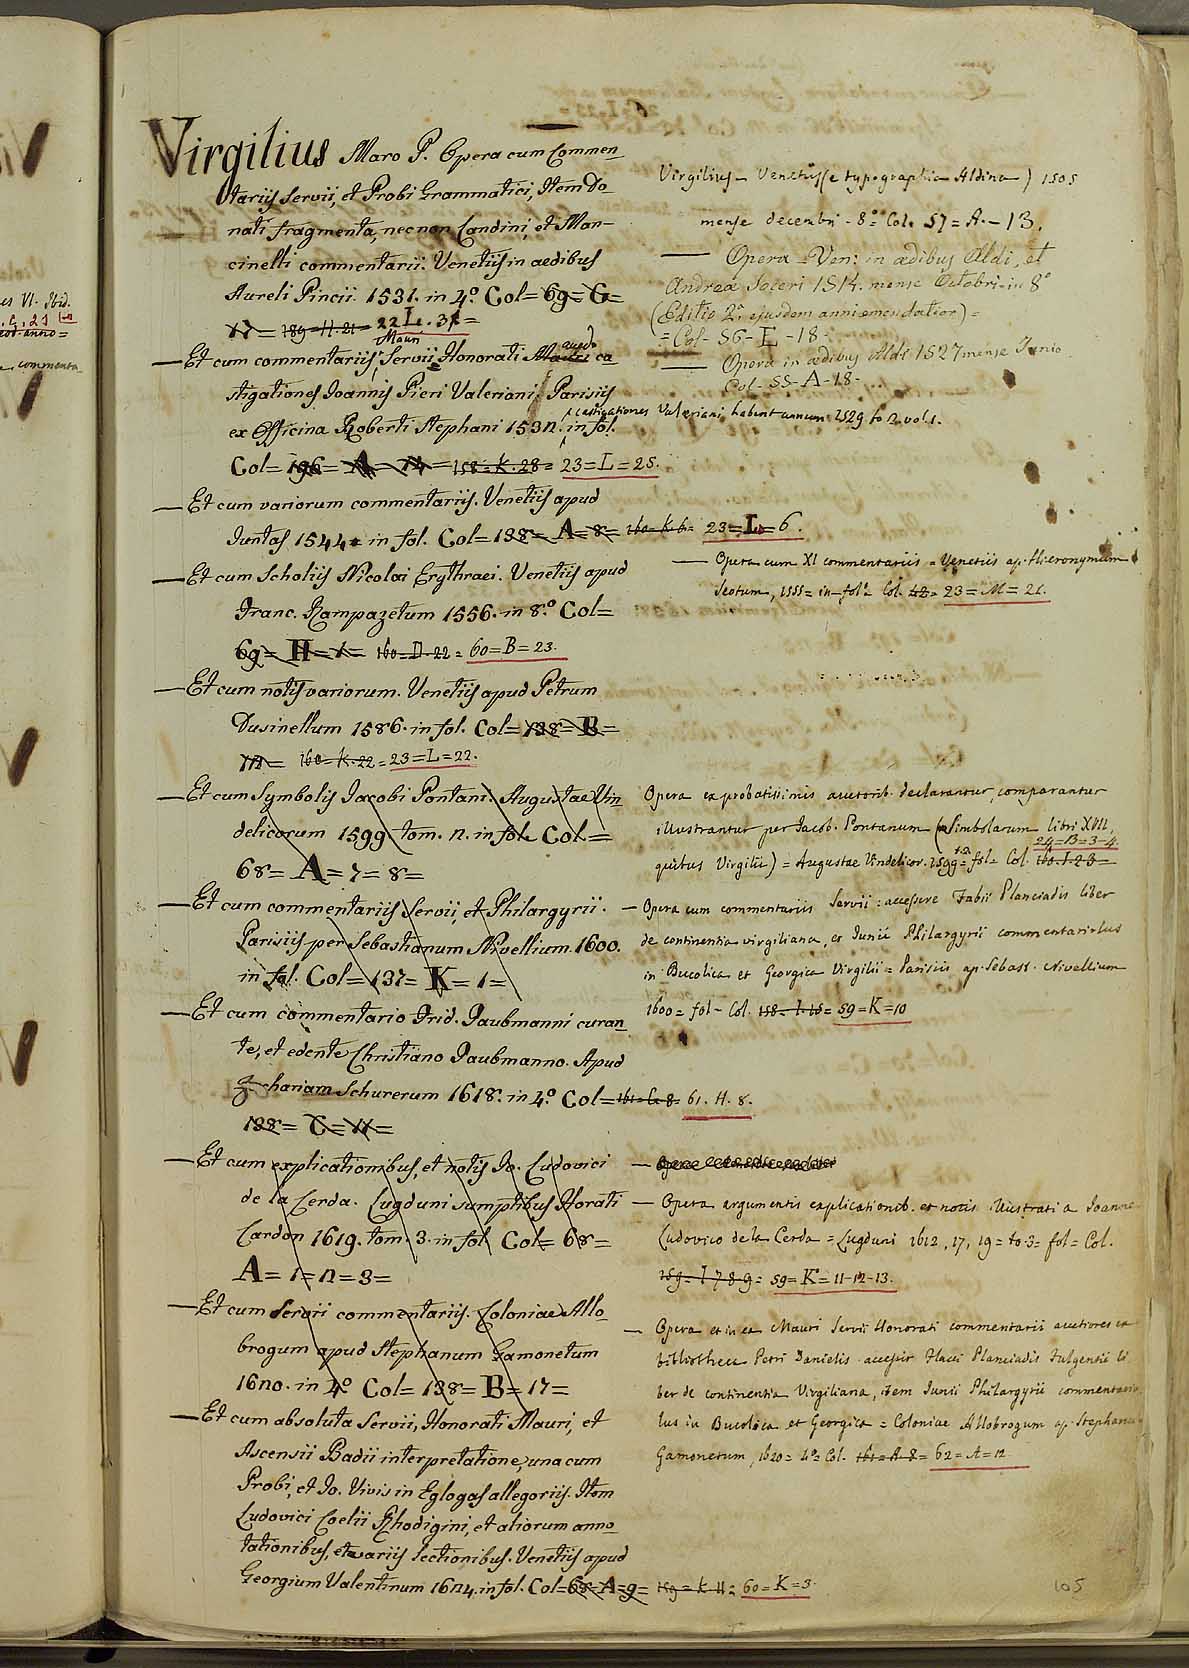 Virgilius Maro P. Opera cum Commen_
tariis Servii, et Probi Grammatici, Item Do
nati fragmenta, nec non Landini, et Man-
cinelli commentarii. Venetiis in aedibus
Aureli Pincii. 1531. in 4.º Col= 69= G=
17= 189=H.21= 22 L. 31=
— Et cum commentariis Mauri Servii Honorati ca_
stigationes Joannis Pieri Valeriani. Parisiis
ex Officina Roberti Stephani 1532. in fol.
castigationes Valeriani habent annum 1529 to 2. vol. 1.
Col= 196= A= 14= 158=K.28= 23=L=25.
— Et cum variorum commentariis. Venetiis apud
Juntas 1544. in fol. Col= 138= A=8= 160=K.6= 23=L=6.
— Et cum Scholiis Nicolai Erythraei. Venetiis apud
Franc. Rampazetum 1556. in 8.º Col=
69= H=1= 160=D.22= 60=B=23.
— Et cum notis variorum. Venetiis apud Petrum
Dusinellum 1586. in fol. Col= 138= B=
12= 160=K.22= 23=L=22.
— Et cum Symbolis Jacobi Pontani. Augustae Vin_
delicorum 1599. tom. 2. in fol. Col=
68= A=7=8=
— Et cum commentariis Servii, et Philargyrii.
Parisiis per Sebastianum Nivellium. 1600.
in fol. Col= 137= K=1=
— Et cum commentario Frid. Taubmanni curan_
te, et edente Christiano Taubmanno. Apud
Zachariam Schurerum 1618. in 4.º Col= 161=C=8= 61. H. 8.
138= C=11=
— Et cum explicationibus, et notis Jo. Ludovici
de la Cerda. Lugduni sumptibus Horati
Cardon 1619. tom. 3. in fol. Col= 68=
A= 1=2=3=
— Et cum Servii commentariis. Coloniae Allo_
brogum apud Stephanum Gamonetum
1620. in 4.º Col= 138= B=17=
— Et cum absoluta Servii, Honorati Mauri, et
Ascensii Badii interpretatione, una cum
Probi, et Jo. Vivis in Eglogas allegoriis. Item
Ludovici Coelii Rhodigini, et aliorum anno_
tationibus, et variis lectionibus. Venetiis apud
Georgium Valentinum 1624. in fol. Col= 68=A=9= 159=K=11= 60=K=3.
Virgilius — Venetiis (e typographia Aldina) 1505
mense decembri - 8º= Col. 57= A. - 13.
— Opera Ven: in aedibus Aldi, et
Andrea Soceri 1514. mense Octobri in 8º
(Editio 2ª ejusdem anni emendatior)=
=Col- 56- E -18-
— Opera in aedibus Aldi 1527 mense Junio
Col- 55- A- 18-
— Opera cum XI commentariis = Venetiis ap. Hieronymum
Scotum, 1555= in-fol.= Col. 23=M=21.
Opera ex probatissimis auctorib. declarantur, comparantur
illustrantur per Jacob. Pontanum (Simbolarum libri XVII,
24=B=3-4.
quibus Virgilii) = Augustae Vindelicor. 1599= to.2. fol= Col. 160.I.2.8=
— Opera cum commentariis Servii: accessere Fabii Planciadis liber
de continentia virgiliana, et Junii Philargyrii commentariolus
in Bucolica et Georgica Virgilii = Parisiis ap. Sebast. Nivellium
1600= fol- Col. 158=I.15= 59=K=10
— Opera argumentis explicationib. et notis illustrati a Joanne
Ludovico de la Cerda = Lugduni 1612, 17, 19= to. 3= fol= Col.
159=I.7.8.9= 59=K=11-12-13.
— Opera et in ea Mauri Servii Honorati commentarii auctiores ex
bibliotheca Petri Danielis. accessit Flavi Planciadis Fulgentii li
ber de continentia Virgiliana, item Junii Philargyrii commentario
lus in Bucolica et Georgica = Coloniae Allobrogum ap. Stephanum
Gamonetum, 1620= 4º= Col. 161=A.8= 62=A=12
105